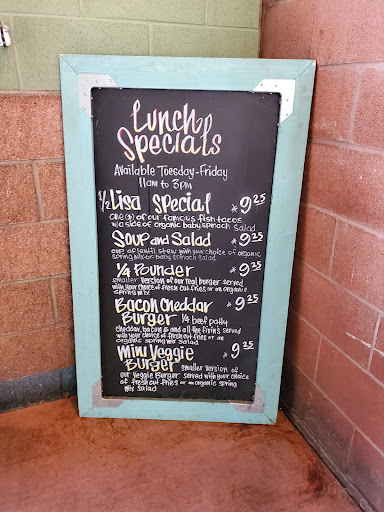 Lunch
Specials
Available Tuesday-Friday
11am to 3pm
1/2 Lisa Special * 9.25
one (1) of our famous fish tacos
w/a side of organic baby spinach salad
Soup and Salad * 9.25
cup of lentil stew with your choice of organic
spring mix or baby spinach salad
1/4 Pounder * 9.25
smaller version of our real burger served
with your choice of fresh cut fries or an organic
spring mix
Bacon Cheddar * 9.25
Burger 1/4 beef patty
cheddar, bacon & and all the fixin's served
with your choice of fresh cut fries or an
organic spring mix salad
Mini Veggie * 9.25
Burger smaller version of
our veggie Burger served with your choice
of fresh cut fries or an organic spring
mix salad